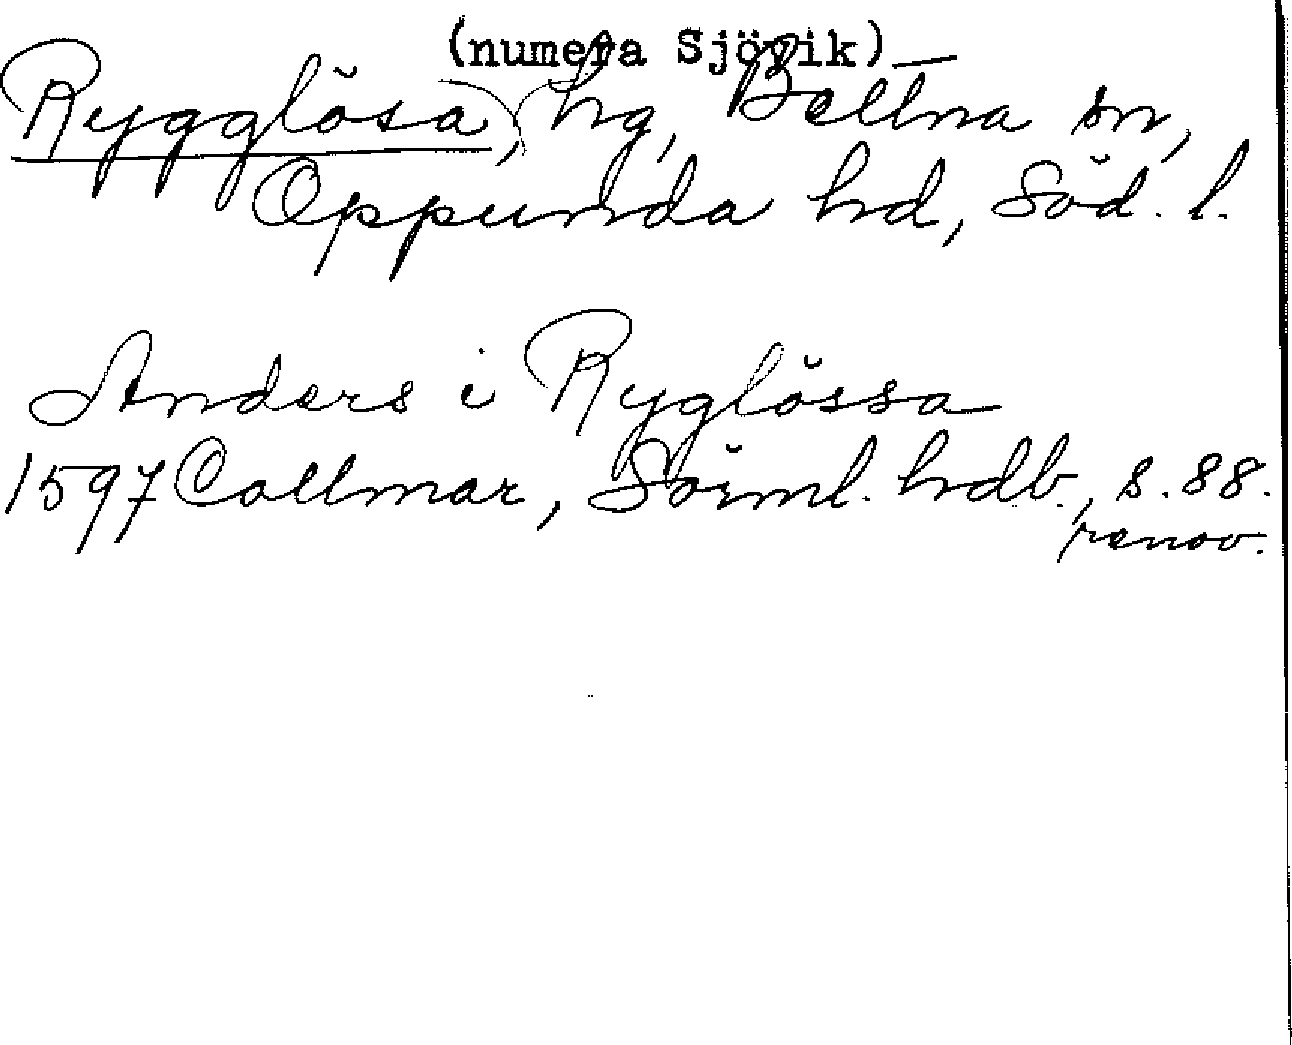 (numera Sjövik)
Rygglösa, hg, Bettna sn,
Oppunda hd, Söd. l.
Anders i Ryglössa
1597 Collmar, Sörml. hdb., s. 88.
renov.